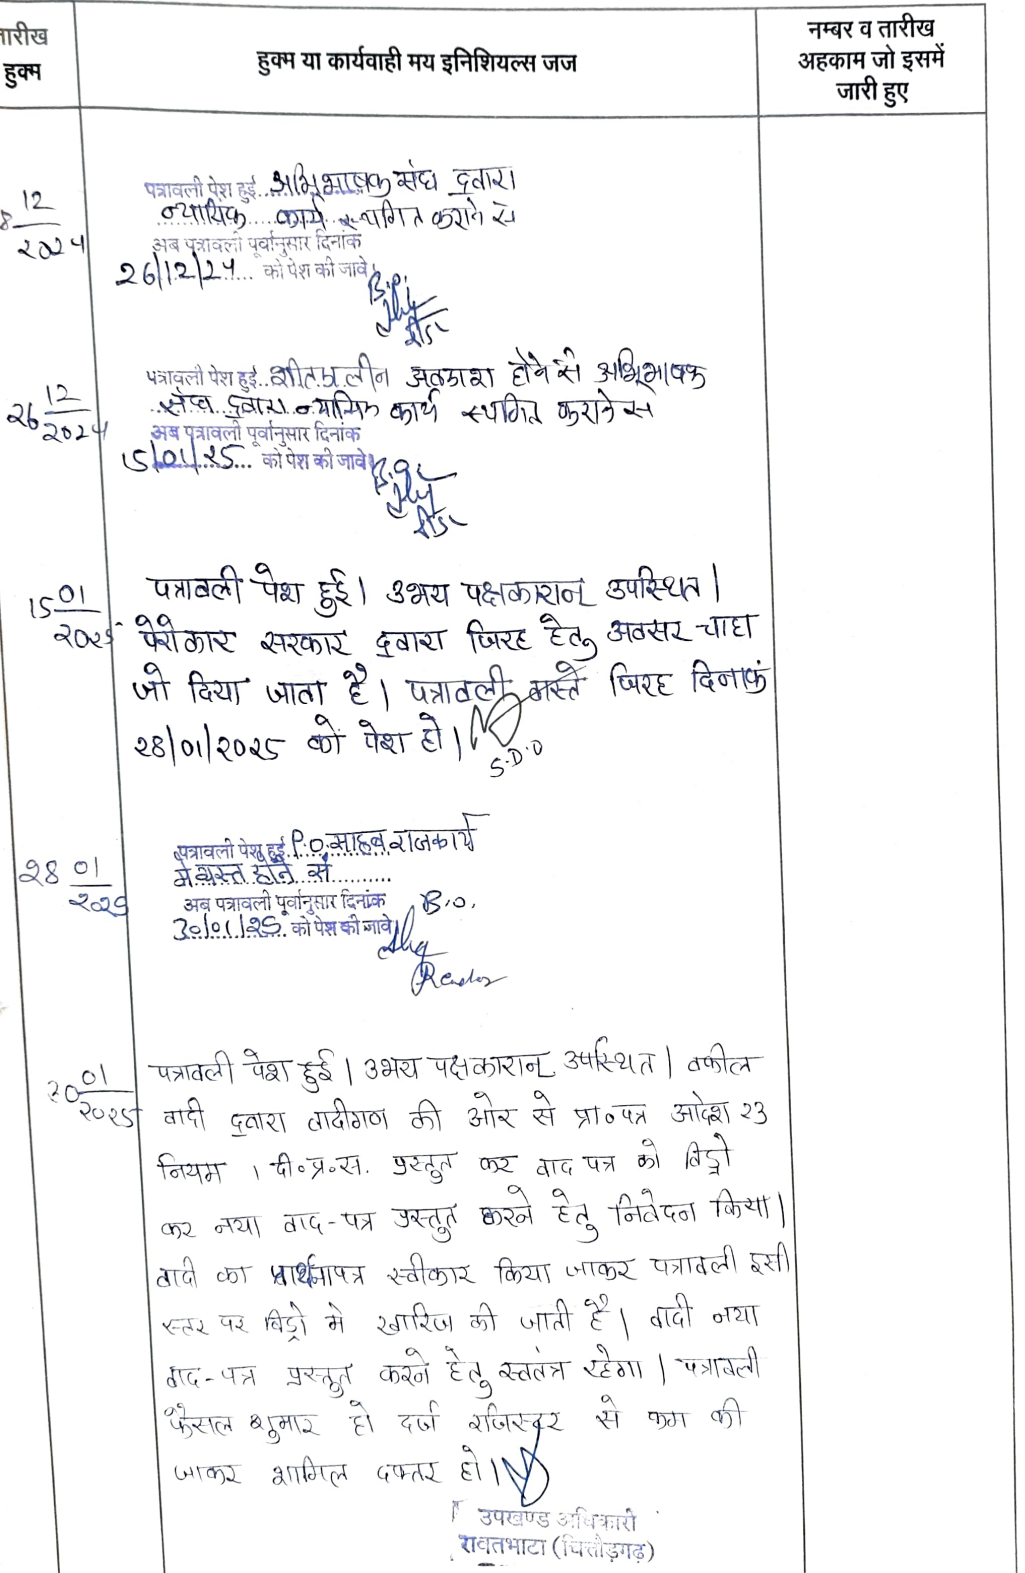 तारीख
हुक्म
हुक्म या कार्यवाही मय इनिशियल्स जज
नम्बर व तारीख
अहकाम जो इसमें
जारी हुए
8 12/2024
पत्रावली पेश हुई. अभिभाषक संघ द्वारा
न्यायिक कार्य स्थगित कराने से
अब पत्रावली पूर्वानुसार दिनांक
26/12/24 को पेश की जावे।
26 12/2024
पत्रावली पेश हुई. शीतकालीन अवकाश होने से अभिभाषक
संघ द्वारा न्यायिक कार्य स्थगित कराने से
अब पत्रावली पूर्वानुसार दिनांक
15/01/25 को पेश की जावे
15 01/2025
पत्रावली पेश हुई। उभय पक्षकारान् उपस्थित।
पेरोकार सरकार द्वारा जिरह हेतु अवसर चाहा
जो दिया जाता है। पत्रावली वास्ते जिरह दिनांक
28/01/2025 को पेश हो।
S.D.O
28 01/2025
पत्रावली पेश हुई P.O. साहब राजकार्य
मे व्यस्त होने से
अब पत्रावली पूर्वानुसार दिनांक
30/01/25. को पेश की जावे
B.O.
Reader
30 01/2025
पत्रावली पेश हुई। उभय पक्षकारान् उपस्थित। वकील
वादी द्वारा वादीगण की ओर से प्रा०पत्र आदेश 23
नियम 1 दी०प्र०स. प्रस्तुत कर वाद पत्र को विड्रो
कर नया वाद-पत्र प्रस्तुत करने हेतु निवेदन किया।
वादी का प्रार्थनापत्र स्वीकार किया जाकर पत्रावली इसी
स्तर पर विड्रो मे खारिज की जाती है। वादी नया
वाद-पत्र प्रस्तुत करने हेतु स्वतंत्र रहेगा। पत्रावली
फैसल शुमार हो दर्ज रजिस्टर से कम की
जाकर शामिल दफ्तर हो।
उपखण्ड अधिकारी
रावतभाटा (चित्तौड़गढ़)